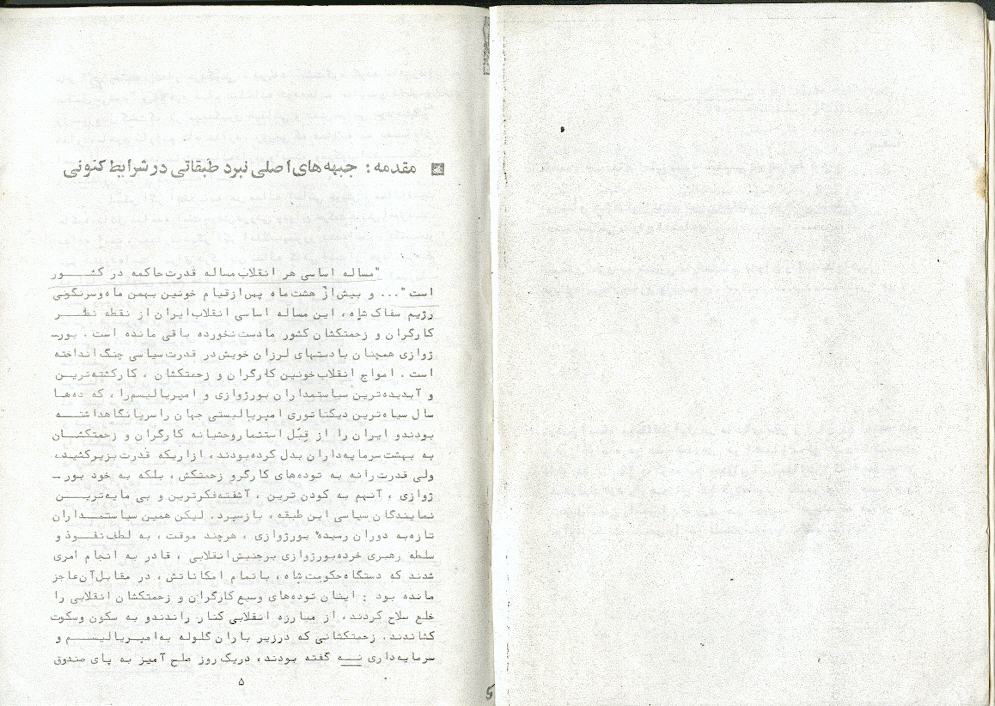 مقدمه : جبهه های اصلی نبرد طبقاتی در شرایط کنونی
"مساله اساسی هر انقلاب مساله قدرت حاکمه در کشـــور
است "... و بیش از هشت ماه پس از قیام خونین بهمن ماه و سرنگونی
رژیم سفاک شاه ، این مساله اساسی انقلاب ایران از نقطه نظـــر
کارگران و زحمتکشان کشور ما دست نخورده باقی مانده است . بورـ
ژوازی همچنان با دستهای لرزان خویش در قدرت سیاسی چنگ انداخته
است . امواج انقلاب خونین کارگران و زحمتکشان ، کارکشته‌ترین
و آبدیده‌ترین سیاستمداران بورژوازی و امپریالیسم را ، که ده‌ها
سال سیاه‌ترین دیکتاتوری امپریالیستی جهان را سرپا نگاهداشتـــه
بودند و ایران را از قِبَل استثمار وحشیانه کارگران و زحمتکشـان
به بهشت سرمایه‌داران بدل کرده بودند ، از اریکه قدرت بزیر کشید،
ولی قدرت را نه به توده‌های کارگر و زحمتکش ، بلکه به خود بورــ
ژوازی ، آنهم به کودن ترین ، آشفته‌فکرترین و بی مایه‌تریـــن
نمایندگان سیاسی این طبقه ، باز سپرد . لیکن همین سیاستمــداران
تازه به دوران رسیده بورژوازی ، هرچند موقت ، به لطف نفــوذ و
سلطه رهبری خرده بورژوازی بر جنبش انقلابی ، قادر به انجام امری
شدند که دستگاه حکومت شاه ، با تمام امکاناتش ، در مقابل آن عاجز
مانده بود : اینان توده‌های وسیع کارگران و زحمتکشان انقلابی را
خلع سلاح کردند ، از مبارزه انقلابی کنار راندند و به سکون و سکوت
کشاندند . زحمتکشانی که در زیر باران گلوله به امپــریالیســـم و
سرمایه‌داری نـــه گفته بودند ، در یک روز ملح آمیز به پای صندوق
۵
5